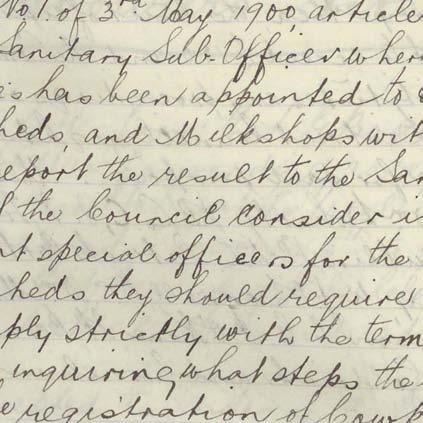 No 1. of 3rd May 1900, article
Sanitary Sub-Officer wher
is has been appointed to
heds, and Milkshops wit
eport the result to the San
the Council consider i
nt special officers for the
heds they should require
ply strictly with the term
inquiring what steps the
e registration of Cowk